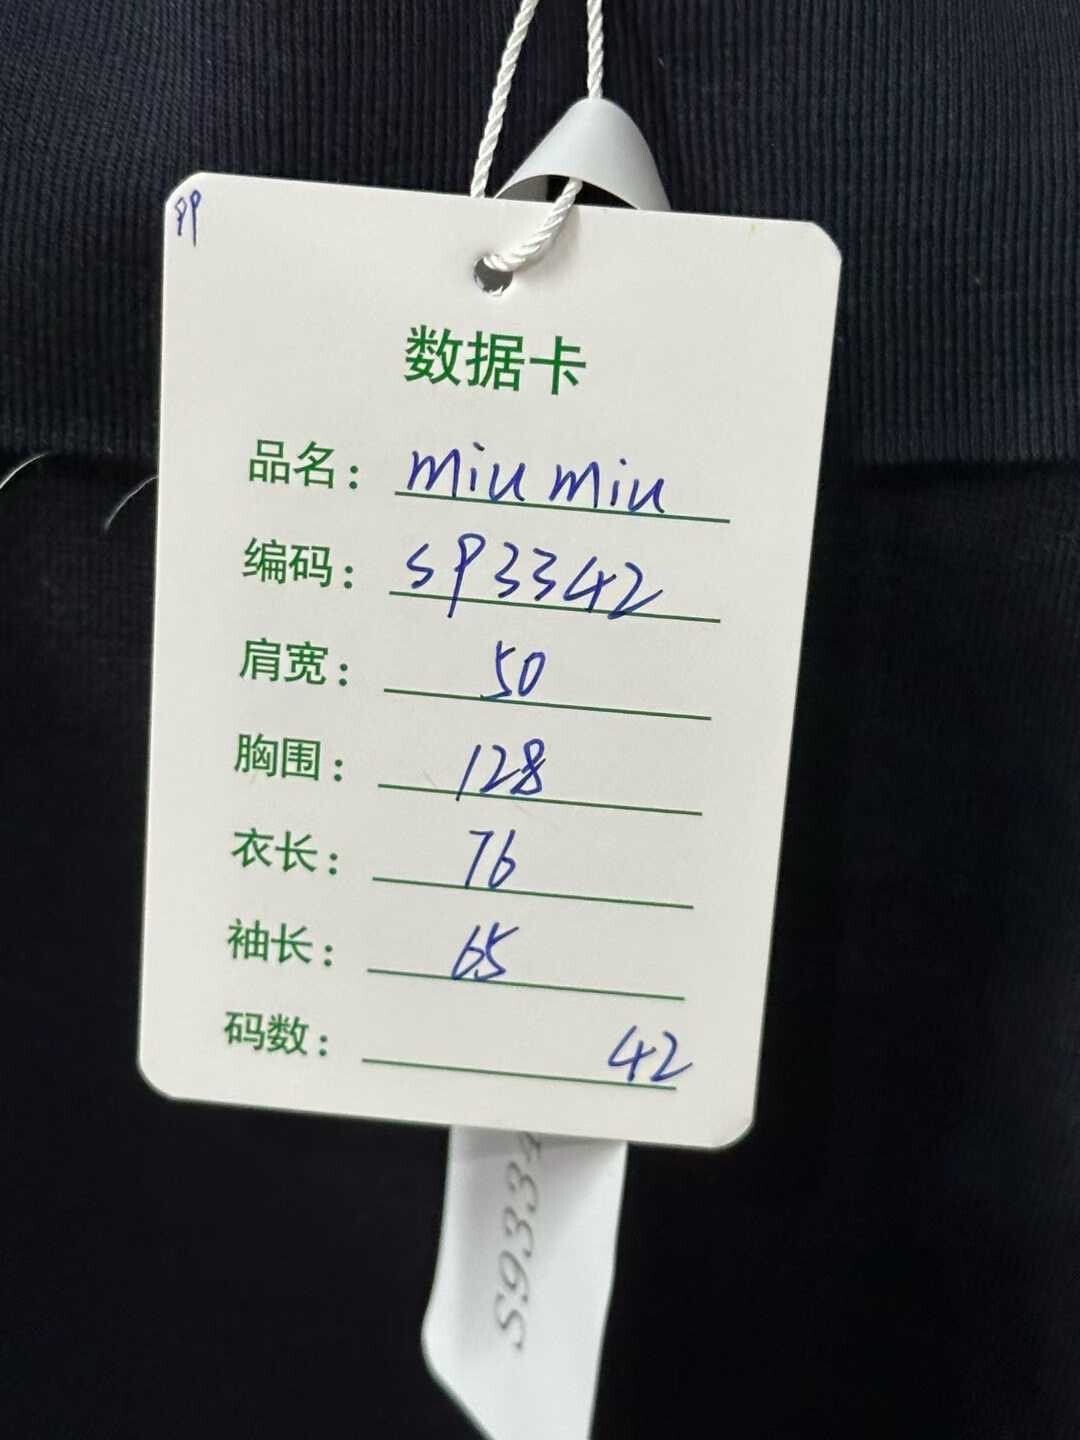 数据卡
品名: miu miu
编码: SP3342
肩宽: 50
胸围: 128
衣长: 76
袖长: 65
码数: 42
S9334